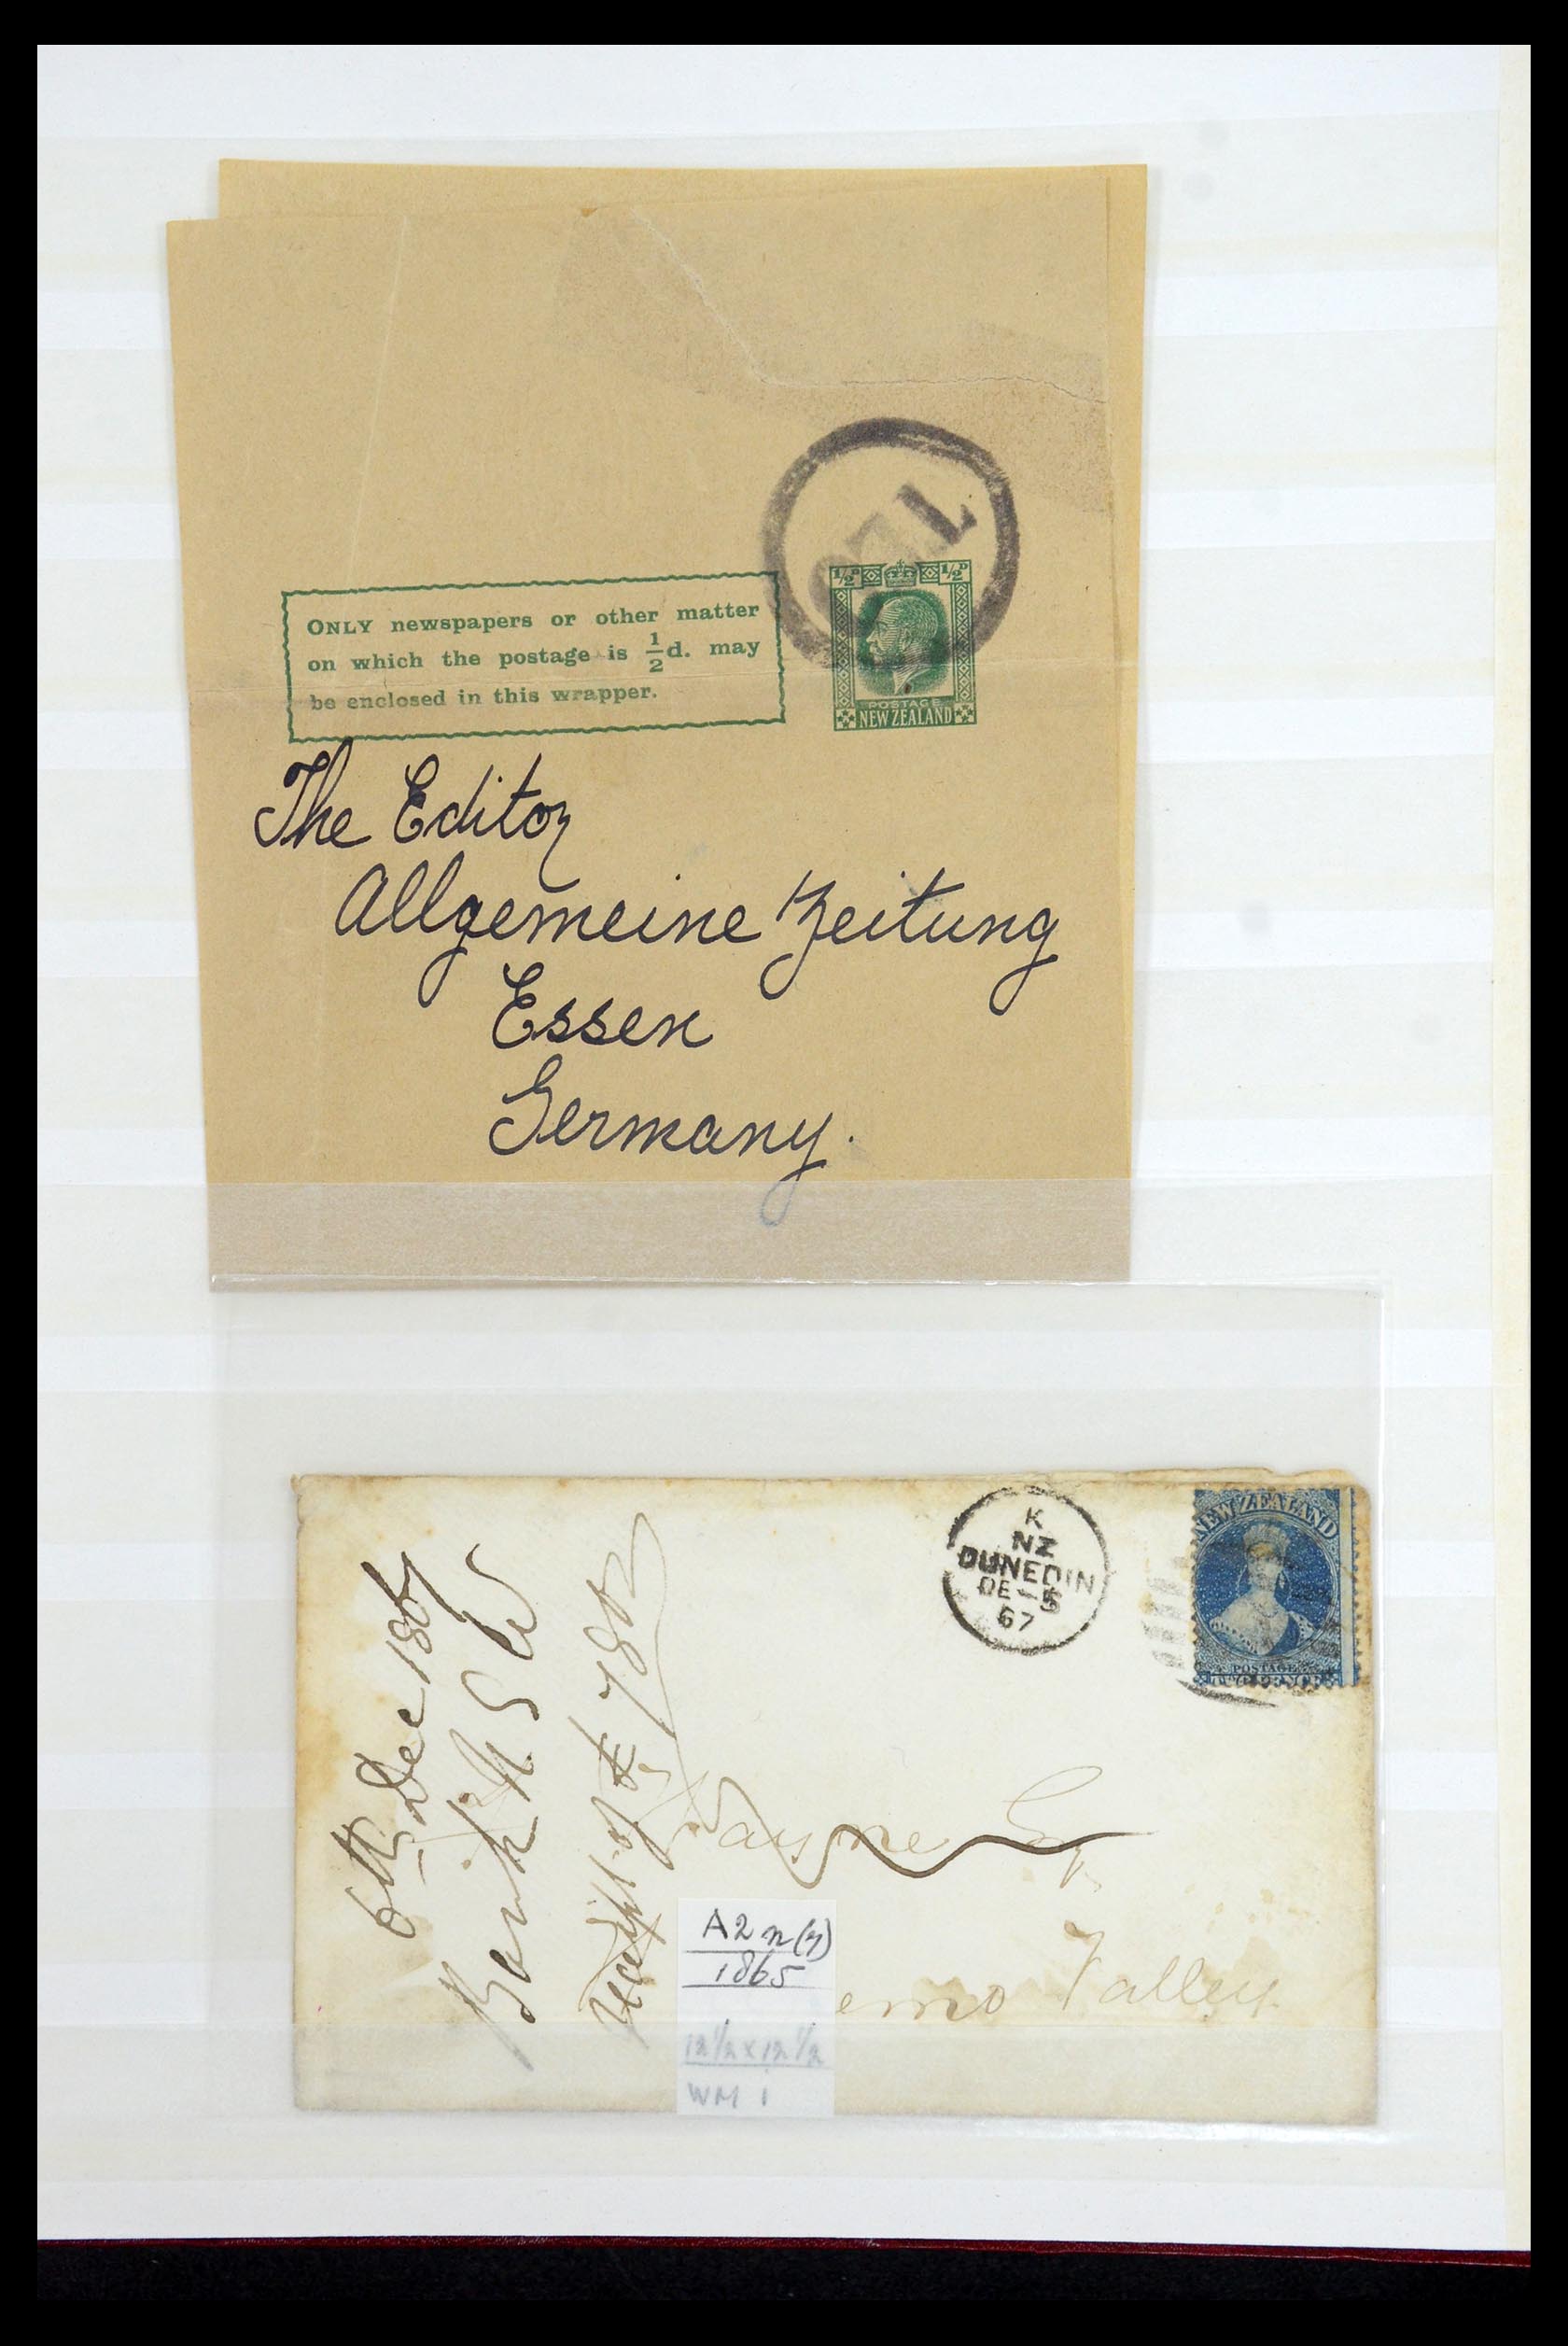 ONLY newspapers or other matter
on which the postage is 1/2d. may
be enclosed in this wrapper.
½D ½D
POSTAGE
NEW ZEALAND
The Editor
Allgemeine Zeitung
Essen
Germany.
K
NZ
DUNEDIN
DE-5
67
NEW ZEALAND
POSTAGE
TWO PENCE
6th Dec 1867
Bank N S W
receipt of £
Payne Esq
Valley
A2n(y)
1865
12½ x 12½
WM i